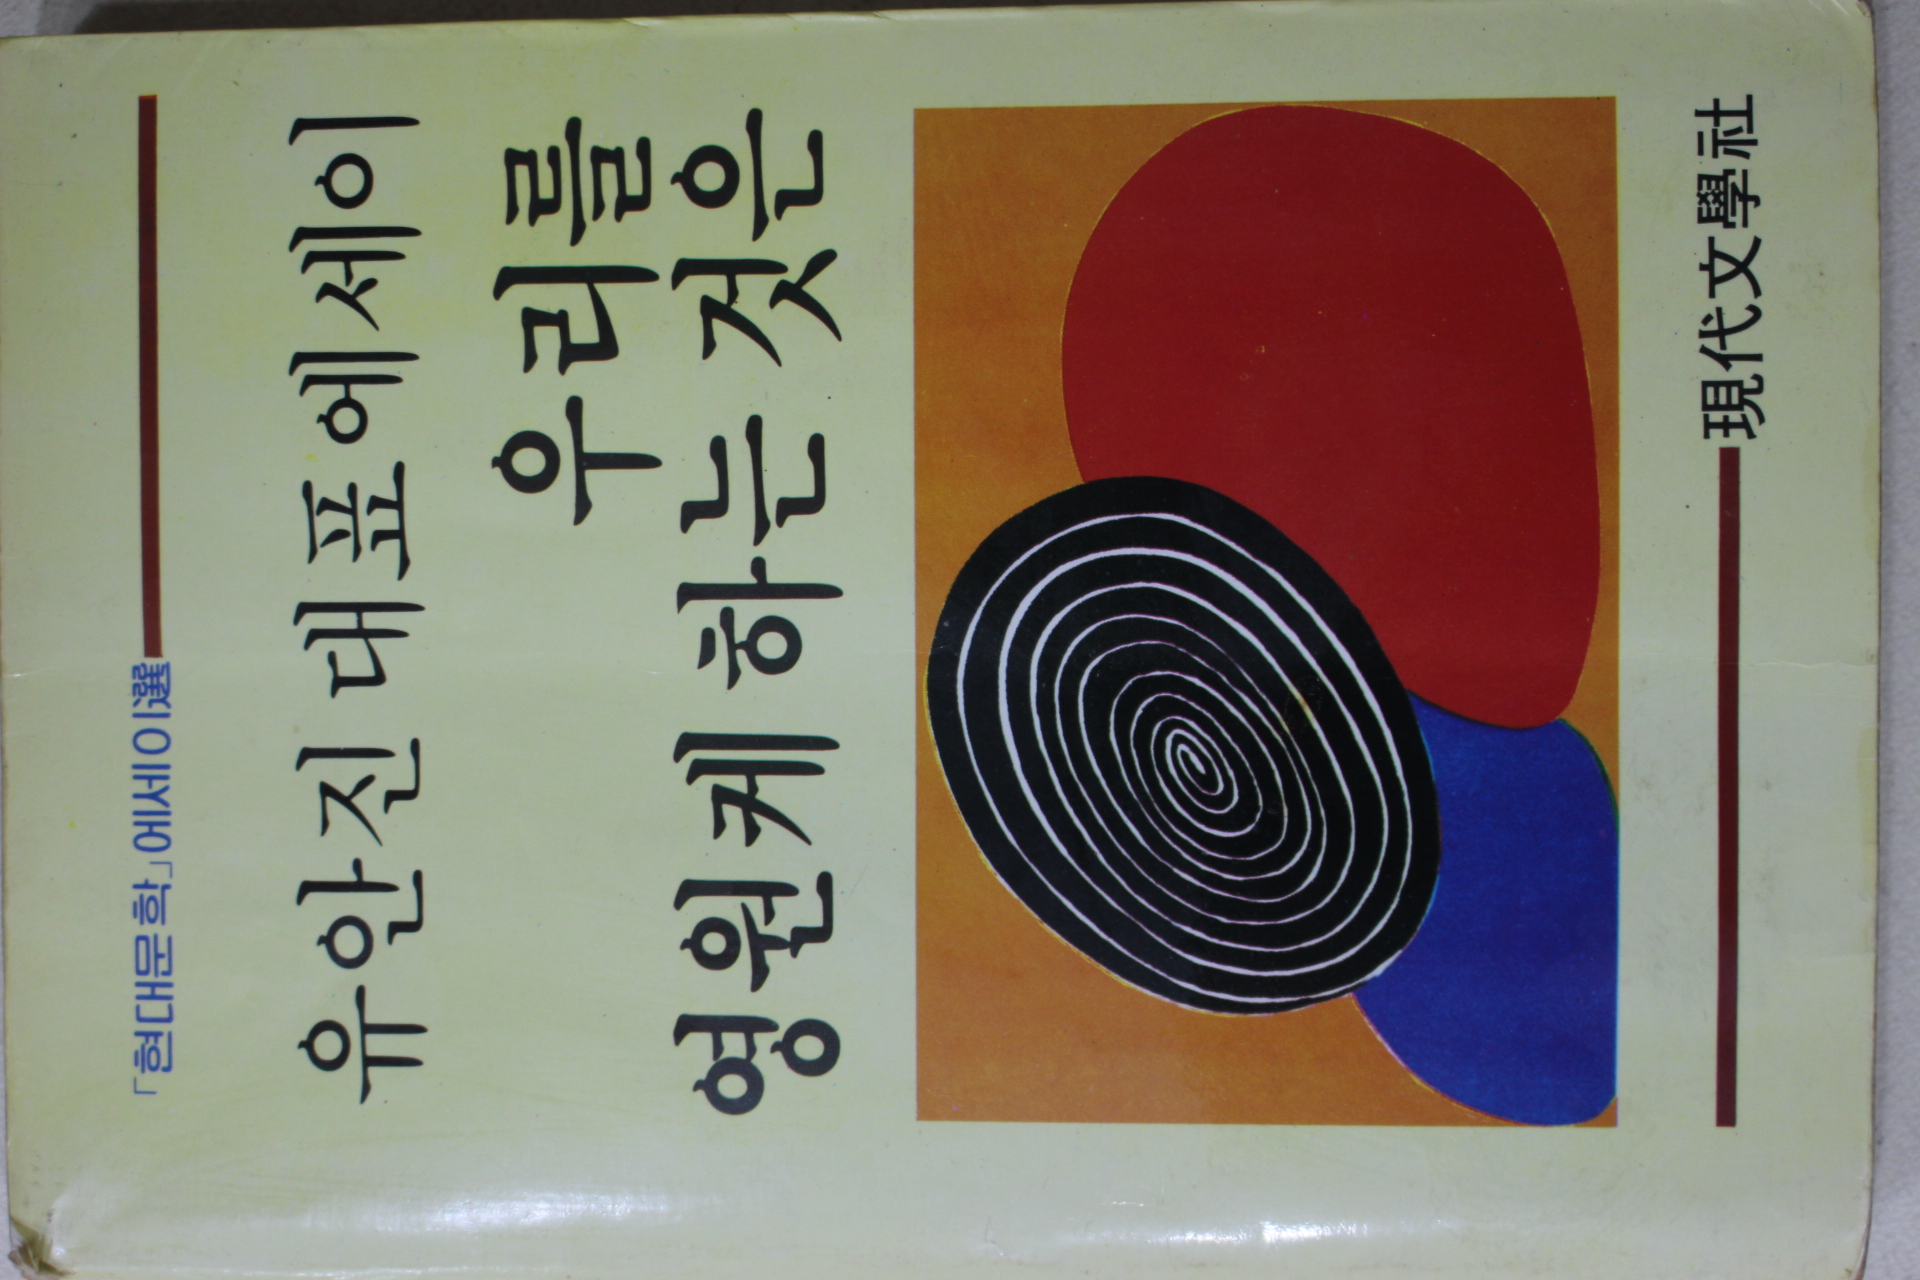 「현대문학」에세이選
유안진 대표에세이
우리를
영원케 하는 것은
現代文學社